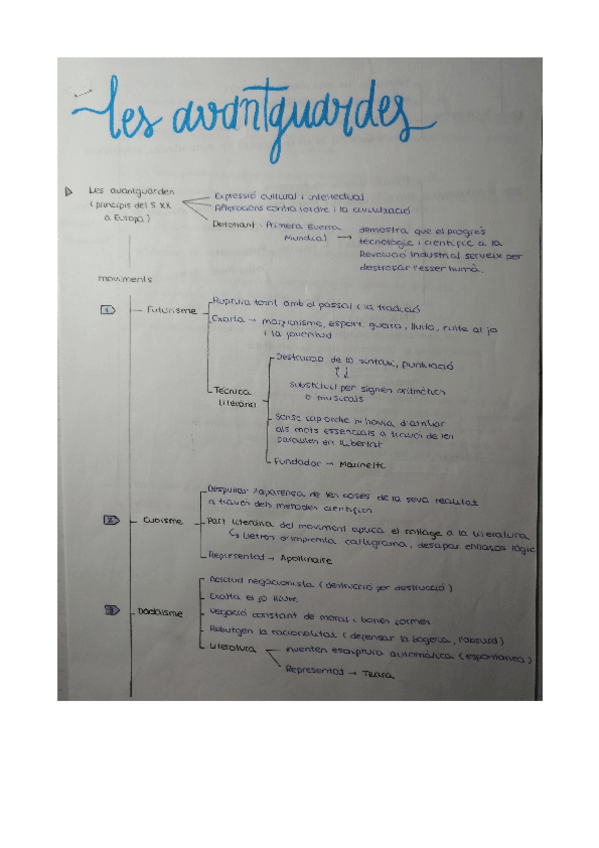 les avantguardes
Les avantguarden
(principis del S. XX
a Europa)
Expressió cultural i intel·lectual
Alteracions contra l'ordre i la civilització
Detonant: Primera Guerra
Mundial → demostra que el progrés
tecnològic i científic a la
Revolució Industrial serveix per
destrossar l'ésser humà.
moviments
1 Futurisme
Ruptura total amb el passat i la tradició
Exalta → maquinisme, esport, guerra, lluita, culte al jo
i la joventud
Tècnica
literària
Destrucció de la sintaxi, puntuació
substituit per signes aritmètics
o musicals
Sense cap ordre hi havia d'arribar
als mots essencials a través de les
paraules en llibertat
Fundador → Marinetti
2 Cubisme
Despullar l'aparença de les coses de la seva realitat
a través dels mètodes científics
Part literària del moviment aplica el collage a la literatura
lletres d'impremta, cal·ligrama, desapar. enllaços lògic
Representat → Apollinaire
3 Dadaisme
Actitud negacionista (destrucció per destrucció)
Exalta el jo lliure
Negació constant de moral i bones formes
Rebutgen la racionalitat (defensar la bogeria, l'absurd)
Literatura
inventen escriptura automàtica (espontanea)
Representat → Tzara